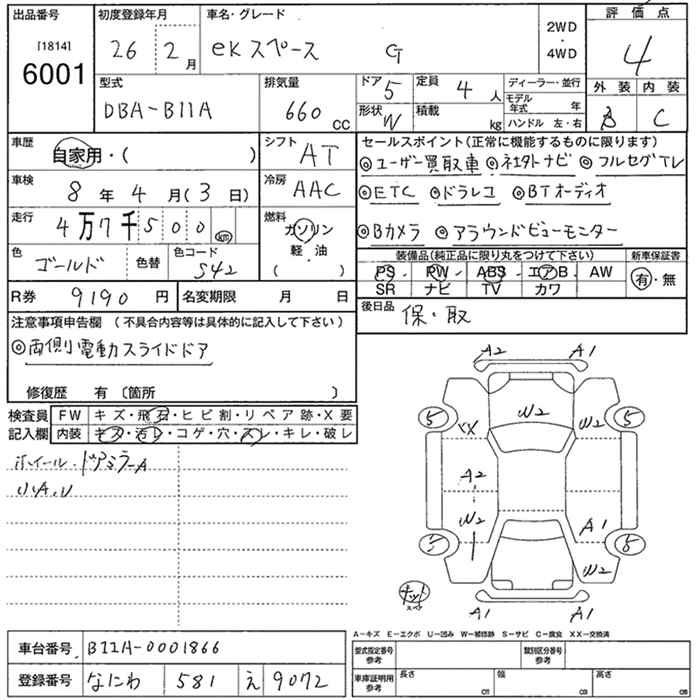 出品番号 初度登録年月 車名・グレード 評価点
[1814] 6001 26 2月 ekスペース G 2WD・4WD 4
型式 排気量 ドア 5 定員 4人 ディーラー・並行 外装 内装
DBA-B11A 660 CC 形状 W 積載 kg モデル年式 年 ハンドル 左・右 B C
車歴 自家用・( ) シフト AT セールスポイント(正常に機能するものに限ります)
◎ユーザー買取車 ◎ナビ ◎フルセグTV
車検 8年4月(3日) 冷房 AAC ◎ETC ◎ドラレコ ◎BTオーディオ
走行 4万7千500 km 燃料 ガソリン 軽・油 ( ) ◎Bカメラ ◎アラウンドビューモニター
色 ゴールド 色替 色コード S42 装備品(純正品に限り丸をつけて下さい) 新車保証書
PS PW ABS エアB AW 有・無
SR ナビ TV カワ
R券 9190円 名変期限 月 日 後日品 保・取
注意事項申告欄 (不具合内容等は具体的に記入して下さい)
◎両側電動スライドドア
修復歴 有 〔箇所 〕
検査員 FW キズ・飛石・ヒビ割・リペア跡・X要
記入欄 内装 キズ・汚レ・コゲ・穴・スレ・キレ・破レ
ホイール・ドアミラーA
小A,U
A2 A1
5 W2 5
XX W2
A2
W2 A1
5 5
W2
A1 A1
A-キズ E-エクボ U-凹み W-補修跡 S-サビ C-腐食 XX-交換済
車台番号 B11A-0001866 型式指定番号 参考 類別区分番号 参考
登録番号 なにわ 581 え 9072 車庫証明用 参考 長さ cm 幅 cm 高さ cm